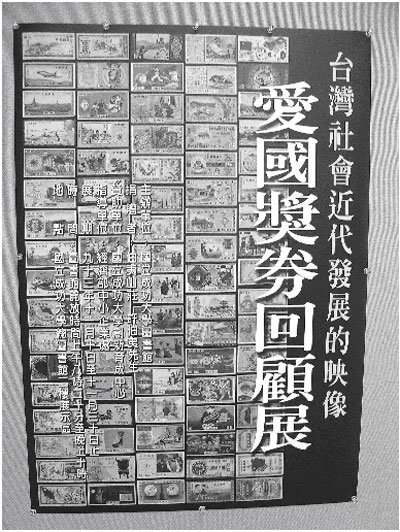 台灣社會近代發展的映像
愛國獎券回顧展
主辦單位：國立成功大學圖書館
協辦單位：國立成功大學 育成中心
指導單位：經濟部中小企業處
展期：九十三年十一月 十日至十二月三十日止
時間：圖書館開放時間上午八時三十分至晚上十時
地點：國立成功大學總圖書館一樓展示區